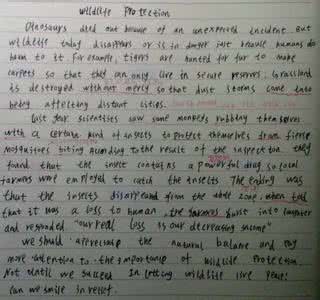 wildlife Protection
Dinosaurs died out because of an unexpected incident But
wildlife today disappears or is in danger just because humans do
harm to it. For example, tigers are hunted for fur to make
carpets so that they can only live in secure reserves. Grassland
is destroyed without mercy so that dust storms come into
being affecting distant cities.
Last year scientists saw some monkeys rubbing themselves
with a certain kind of insects to protect themselves from fierce
mosquitoes' biting According to the result of the inspection they
found that the insect contains a powerful drug so local
farmers were employed to catch the insects The ending was
that the insects disappeared from the whole zone. when told
that it was a loss to human, the farmers burst into laughter
and responded "our real loss is our decreasing income"
we should appreciate the natural balance and pay
more attention to the importance of wildlife protection.
Not until we succeed in letting wildlife live peace.
can we smile in relief.